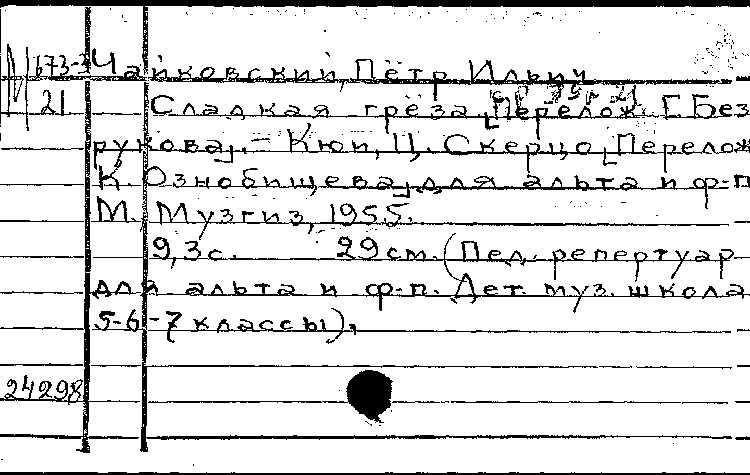 М 673-3 Чайковский, Пётр Ильич
21 Сладкая грёза [Перелож. Г. Без
рукова]. – Кюи, Ц. Скерцо [Перелож
К. Ознобищева] для альта и ф-п
М. Музгиз, 1955.
9,3с. 29см. (Пед. репертуар
для альта и ф-п. Дет. муз. школа
5-6-7 классы).
24298